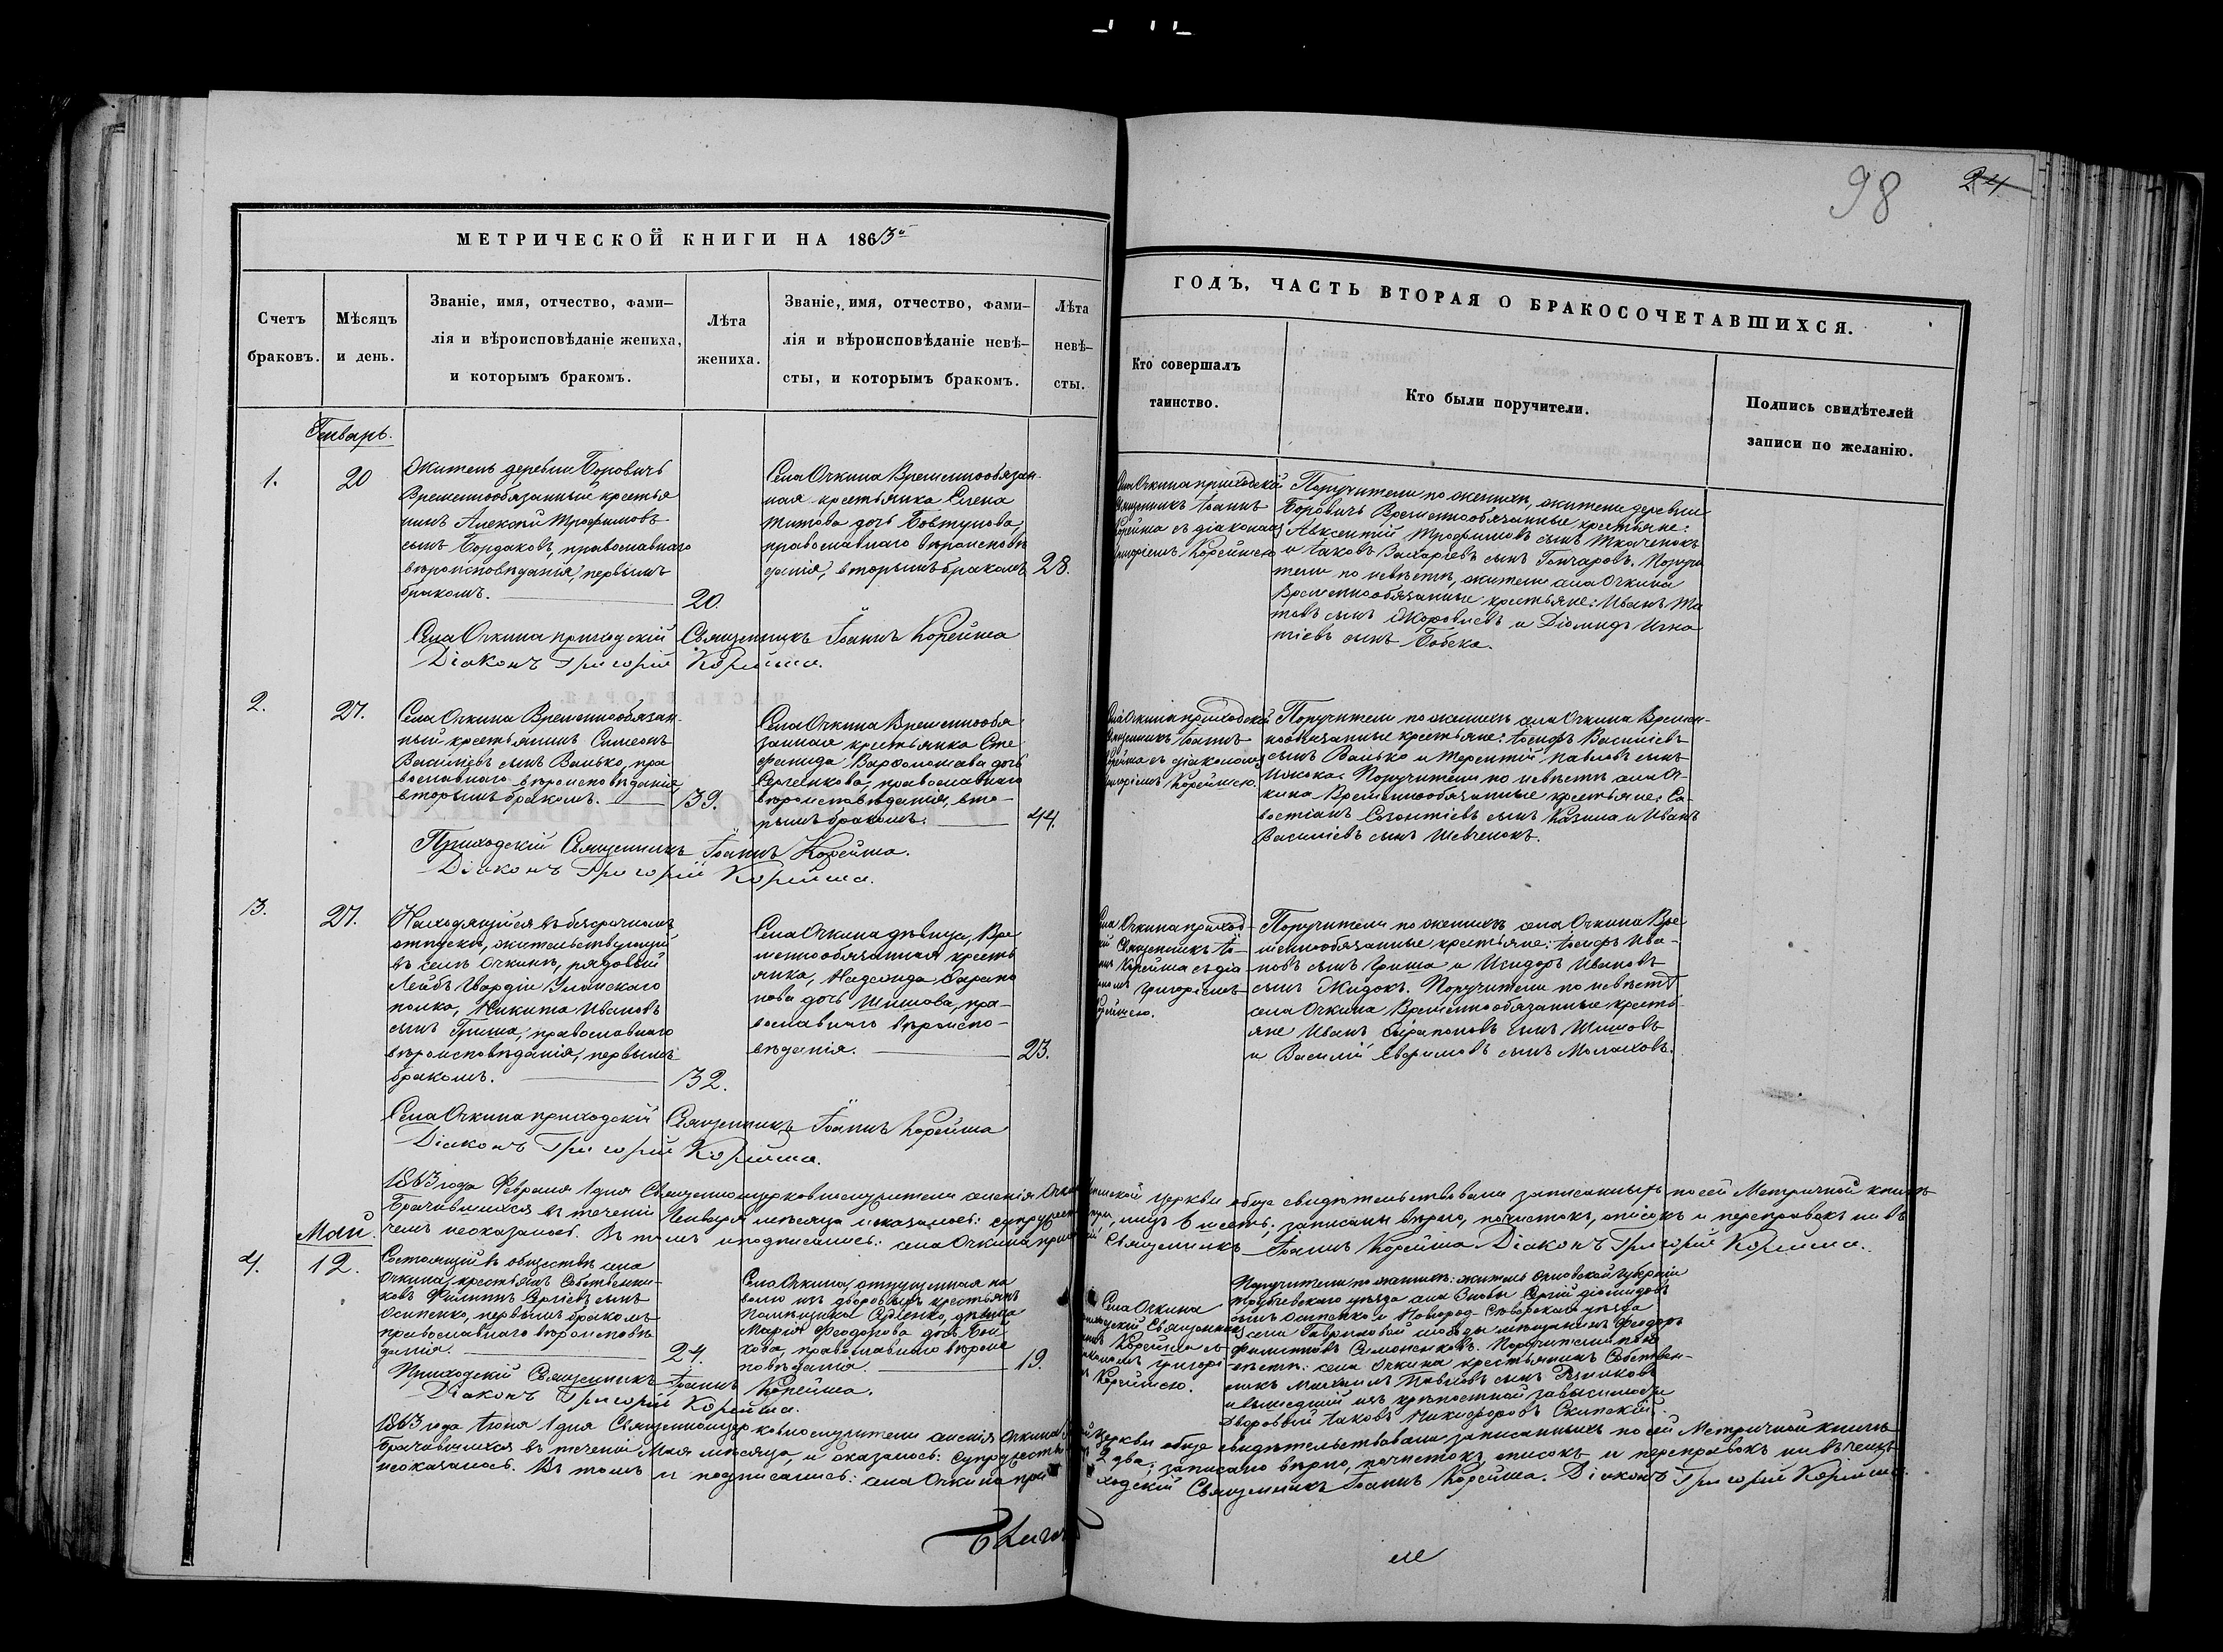 98
24
МЕТРИЧЕСКОЙ КНИГИ НА 1863й
ГОДЪ, ЧАСТЬ ВТОРАЯ О БРАКОСОЧЕТАВШИХСЯ.
Счетъ
браковъ.
Мѣсяцъ
и день.
Званіе, имя, отчество, фами-
лія и вѣроисповѣданіе жениха,
и которымъ бракомъ.
Лѣта
жениха.
Званіе, имя, отчество, фами-
лія и вѣроисповѣданіе невѣ-
сты, и которымъ бракомъ.
Лѣта
невѣ-
сты.
Кто совершалъ
таинство.
Кто были поручители.
Подпись свидѣтелей
записи по желанію.
Январь.
1.
20
Житель деревни Боровичъ
Временнообязанный крестья
нинъ Алексѣй Трофимовъ
сынъ Бордаковъ, православнаго
вѣроисповѣданія, первымъ
бракомъ.
20.
Села Очкина Временнообязан-
ная крестьянка Елена
Титова дочь Бовтунова,
православнаго вѣроисповѣ
данія, вторымъ бракомъ
28.
Села Очкина приходскій
Священникъ Іоаннъ
Корейша съ діакономъ
Григоріемъ Корейшею
Поручители по женихѣ, жители деревни
Боровичъ Временнообязанные крестьяне:
Авксентій Трофимовъ сынъ Ткаченокъ
и Іаковъ Захаріевъ сынъ Гончаровъ. Поручи
тели по невѣстѣ, жители села Очкина
Временнообязанные крестьяне: Иванъ Ти
товъ сынъ и Діомидъ Игна
тіевъ сынъ
Села Очкина приходскій Священникъ Іоаннъ Корейша
Діаконъ Григорій Корейша.
2.
27.
Села Очкина Временнообязан-
ный крестьянинъ Симеонъ
Василіевъ сынъ Ванько, пра
вославнаго вѣроисповѣданія,
вторымъ бракомъ.
39.
Села Очкина Временнообя
занная крестьянка Сте
фанида Варфоломеева дочь
православнаго
вѣроисповѣданія, вто-
рымъ бракомъ.
44.
Села Очкина приходскій
Священникъ Іоаннъ
Корейша съ діакономъ
Григоріемъ Корейшею.
Поручители по женихѣ села Очкина Времен-
нообязанные крестьяне: Іосифъ Василіевъ
сынъ Ванько и Терентій Павловъ сынъ
Поручители по невѣстѣ села Оч-
кина Временнообязанные крестьяне: Са-
востіанъ Созонтіевъ сынъ Козина и Иванъ
Василіевъ сынъ Шевченокъ.
Приходскій Священникъ Іоаннъ Корейша.
Діаконъ Григорій Корейша.
3.
27.
Находящійся въ безсрочномъ
отпуску, жительствующій
въ селѣ Очкинѣ, рядовый
Лейбъ Гвардіи Уланскаго
полка, Никита Ивановъ
сынъ Гриша, православнаго
вѣроисповѣданія, первымъ
бракомъ.
32.
Села Очкина дѣвица, Вре
меннообязанная кресть
янка, Надежда Сарапо
нова дочь Шишова, пра-
вославнаго вѣроиспо-
вѣданія.
23.
Села Очкина приход-
скій Священникъ Іо-
аннъ Корейша съ діа
кономъ Григоріемъ
Корейшею.
Поручители по женихѣ села Очкина Вре
меннообязанные крестьяне: Іосифъ Ива-
новъ сынъ Гриша и Исидоръ Ивановъ
сынъ Жидокъ. Поручители по невѣстѣ
села Очкина Временнообязанные кресть-
яне Иванъ Сарапоновъ сынъ Шишовъ
и Василій Ефримовъ сынъ Малаховъ.
Села Очкина приходскій Священникъ Іоаннъ Корейша
Діаконъ Григорій Корейша.
1863 года Февраля 1 дня Священноцерковнослужители селенія Очкинской церкви обще свидѣтельствовали записанныхъ по сей Метричной книгѣ
Брачившихся въ теченіи Января мѣсяца и оказалось: супружествъ три, лицъ 6 шесть; записаны вѣрно, почистокъ, описокъ и переправокъ ни въ
чемъ неоказалось. Въ томъ и подписались: села Очкина приходскій Священникъ Іоаннъ Корейша Діаконъ Григорій Корейша.
Май.
4.
12.
Состоящій въ обществѣ села
Очкина, крестьянъ Собственни-
ковъ Филиппъ Сергіевъ сынъ
Осипенко, первымъ бракомъ
православнаго вѣроисповѣ
данія.
24.
Села Очкина, отпущенная на
волю изъ дворовыхъ крестьянъ
Помѣщика дѣвица
Марія Феодорова дочь Бой
кова, православнаго вѣроис
повѣданія.
19.
Села Очкина
приходскій Священникъ
Іоаннъ Корейша съ
діакономъ Григорі
емъ Корейшею.
Поручители по женихѣ: житель Орловской Губерніи
Трубчевскаго уѣзда села Зновы Сергій Діомидовъ
сынъ Осипенко и Новород-Сѣверскаго уѣзда
села Гавриловой слободы мѣщанинъ Феодоръ
Филипповъ Симоненковъ. Поручители по не
вѣстѣ: села Очкина крестьянинъ Собствен-
никъ Михаилъ Павловъ сынъ
и вышедшій изъ крѣпостной зависимости
Дворовый Іаковъ Никифоровъ Скипскій.
Приходскій Священникъ Іоаннъ Корейша.
Діаконъ Григорій Корейша.
1863 года Іюня 1 дня Священноцерковнослужители селенія Очкинской церкви обще свидѣтельствовали записанныхъ по сей Метричной книгѣ
Брачившихся въ теченіи Мая мѣсяца, и оказалось: супружествъ 2 два; записано вѣрно, почистокъ, описокъ и переправокъ ни въ чемъ
неоказалось. Въ томъ и подписались: села Очкина приходскій Священникъ Іоаннъ Корейша. Діаконъ Григорій Корейша.